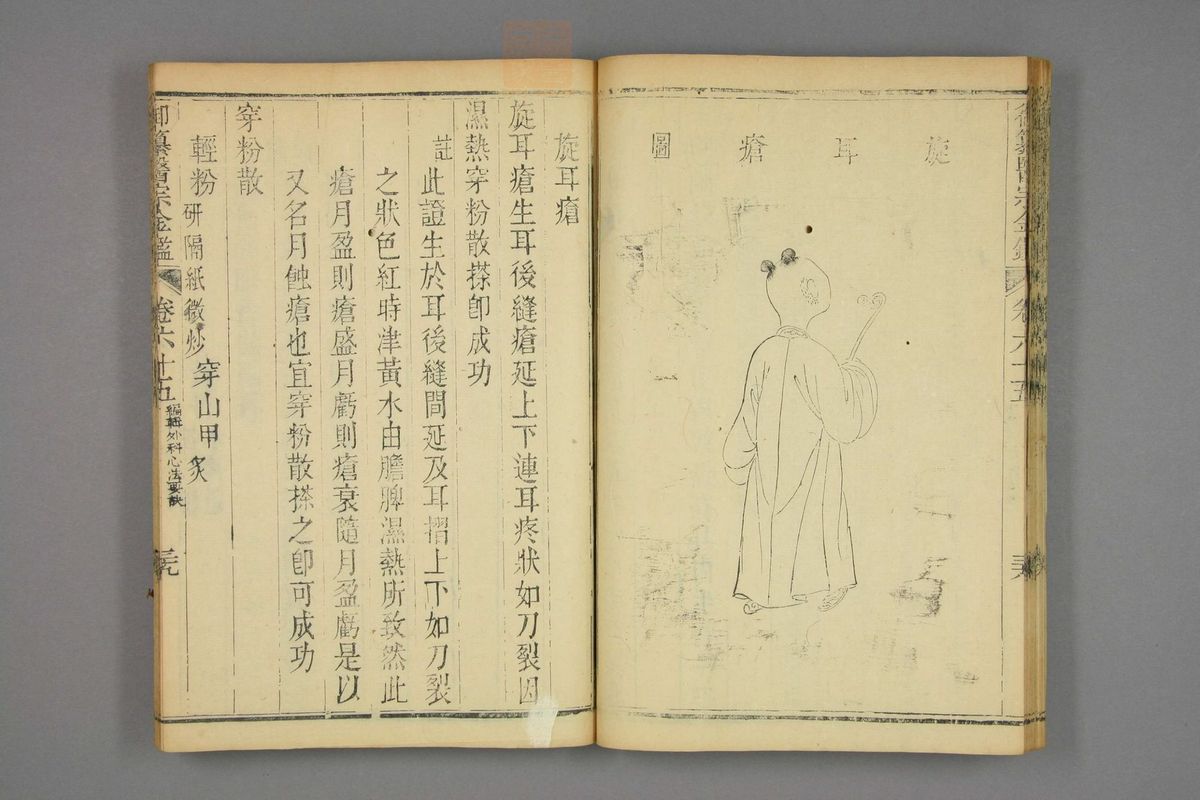 旋耳瘡圖
旋耳瘡
旋耳瘡生耳後縫瘡延上下連耳疼狀如刀裂因
濕熱穿粉散搽即成功
註此證生於耳後縫間延及耳摺上下如刀裂
之狀色紅時津黃水由膽脾濕熱所致然此
瘡月盈則瘡盛月虧則瘡衰隨月盈虧是以
又名月蝕瘡也宜穿粉散搽之即可成功
穿粉散
輕粉研隔紙微炒穿山甲炙
御纂醫宗金鑑 卷六十五 編輯外科心法要訣 三九